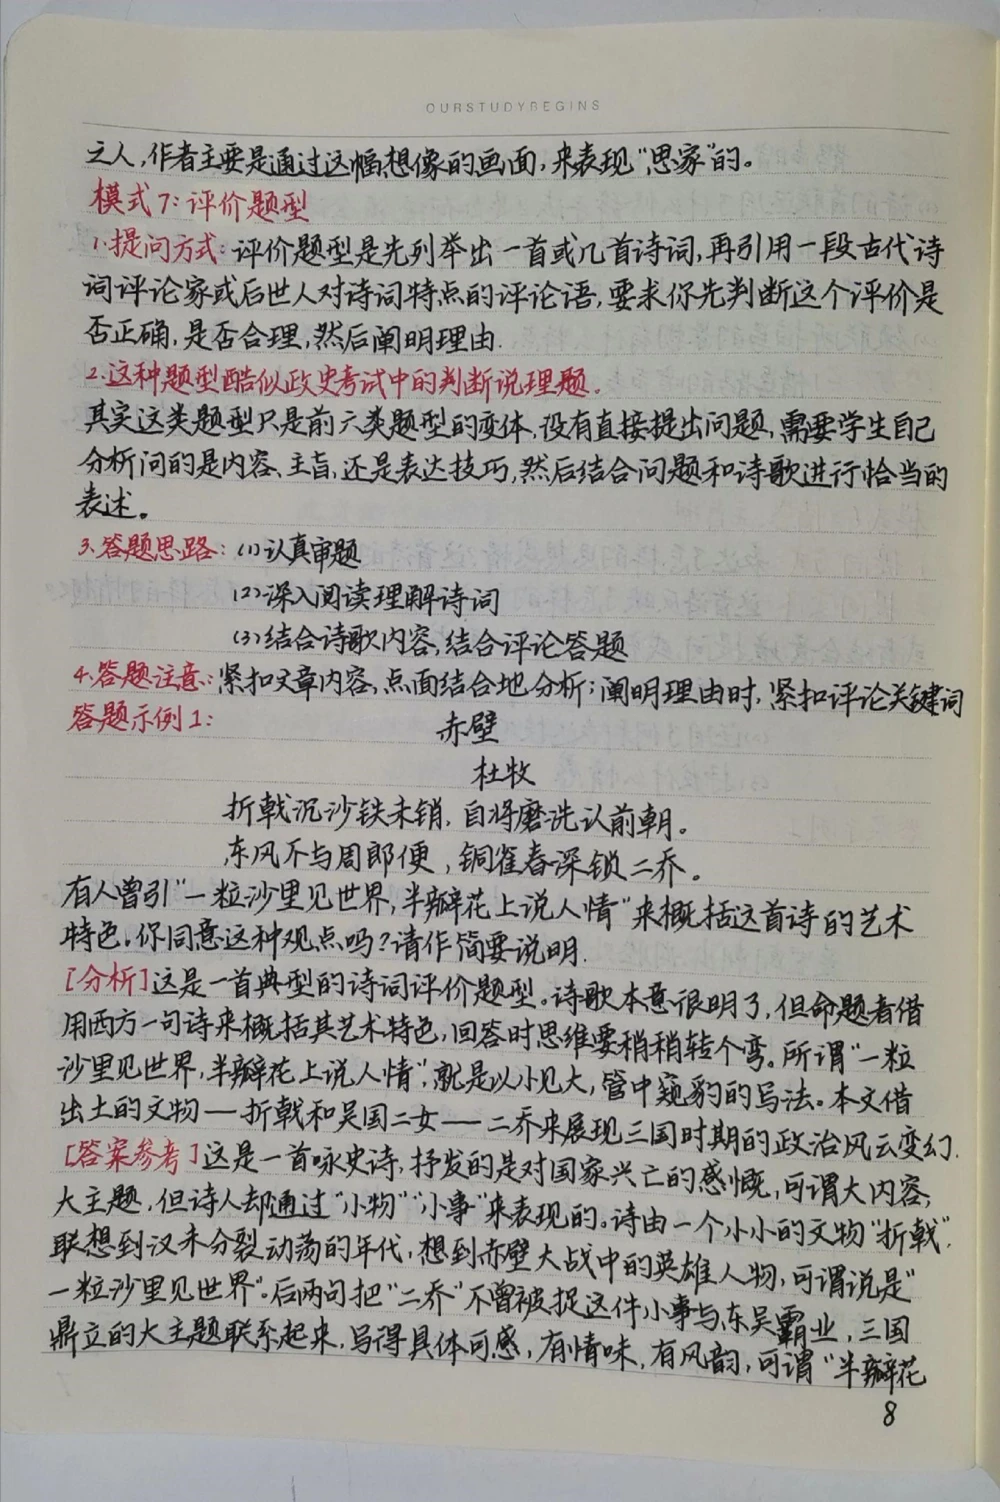 OURSTUDYBEGINS
之人,作者主要是通过这幅想像的画面,来表现"思家"的。
模式7:评价题型
1.提问方式:评价题型是先列举出一首或几首诗词,再引用一段古代诗
词评论家或后世人对诗词特点的评论语,要求你先判断这个评价是
否正确,是否合理,然后阐明理由.
2.这种题型酷似政史考试中的判断说理题。
其实这类题型只是前六类题型的变体,没有直接提出问题,需要学生自己
分析问的是内容、主旨,还是表达技巧,然后结合问题和诗歌进行恰当的
表述。
3.答题思路:(1)认真审题
(2)深入阅读理解诗词
(3)结合诗歌内容,结合评论答题
4.答题注意:紧扣文章内容,点面结合地分析;阐明理由时,紧扣评论关键词
答题示例1: 赤壁
杜牧
折戟沉沙铁未销,自将磨洗认前朝。
东风不与周郎便,铜雀春深锁二乔。
有人曾引"一粒沙里见世界,半瓣花上说人情"来概括这首诗的艺术
特色。你同意这种观点吗?请作简要说明.
[分析]这是一首典型的诗词评价题型。诗歌本意很明了,但命题者借
用西方一句诗来概括其艺术特色,回答时思维要稍稍转个弯。所谓"一粒
沙里见世界,半瓣花上说人情",就是以小见大,管中窥豹的写法。本文借
出土的文物——折戟和吴国二女——二乔来展现三国时期的政治风云变幻.
[答案参考]这是一首咏史诗,抒发的是对国家兴亡的感慨,可谓大内容,
大主题,但诗人却通过"小物""小事"来表现的。诗由一个小小的文物"折戟",
联想到汉末分裂动荡的年代,想到赤壁大战中的英雄人物,可谓说是"
一粒沙里见世界"。后两句把"二乔"不曾被捉这件小事与东吴霸业,三国
鼎立的大主题联系起来,写得具体可感,有情味,有风韵,可谓"半瓣花
8